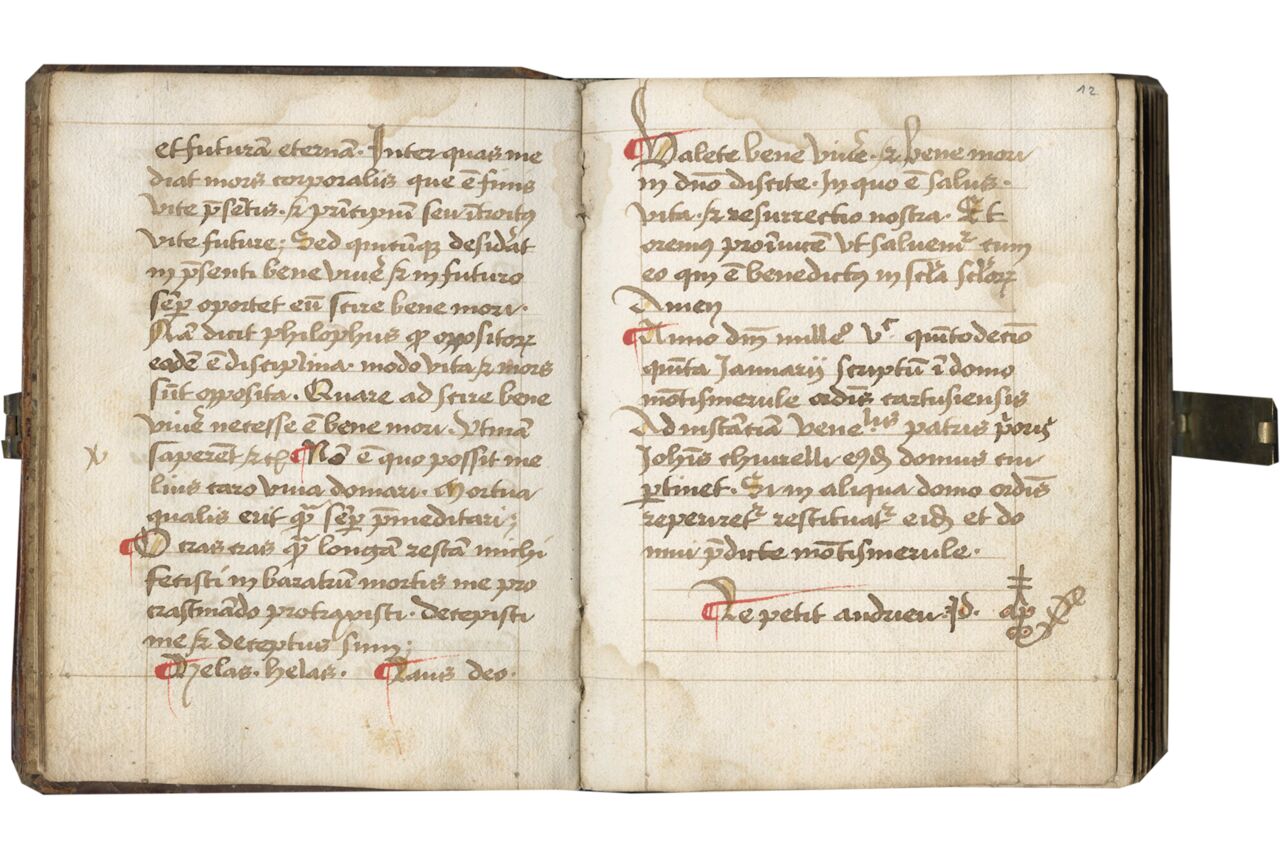 et futurā eternā. Inter quas me
diat mors corporalis que ē finis
vite p̄sentis. et prīncipiū seu ītroitꝰ
vite future; Sed quicūqꝫ desidērat
in p̄senti bene vivē et in futuro
semꝑ oportet eū scire bene mori.
Nā dicit philoph̄us ꝙ oppositoꝝ
eadē ē disciplina. modo vita et mors
sūt opposita. Quare ad scire bene
vivē necesse ē bene mori. Utinā
saperēt etc̄ Nō ē quo possit me
lius caro viva domari. Mortua
qualis erit quā semꝑ p̄meditari;
O cras cras quā longā restā michi
fecisti in baratrū mortis me pro
crastinādo protraxisti. decepisti
me et deceptus sum;
Helas. helas. Laus deo.
12
Valete bene vivē. et bene mori
in dn̄o discite. In quo ē salus.
vita. et resurrectio nostra. Et
oremꝰ pro īnvicē ut salvemʳ cum
eo qui ē benedictꝰ in scl̄a scl̄oꝝ
Amen
Anno dn̄i mille° vᶜ quīntodecīo
quīnta Januarii scriptū ī domo
mōtismerule ordīs cartusiensis
Ad instātiā veneˡⁱˢ patris p̄oris
Joh̄is thurelli eꝰd̄ domus cui
ꝑtinet. Si in aliqua domo ordīs
reperiretʳ restituatʳ eid̄ et do
mui p̄dicte mōtismerule.
Le petit andrieu. Jd.